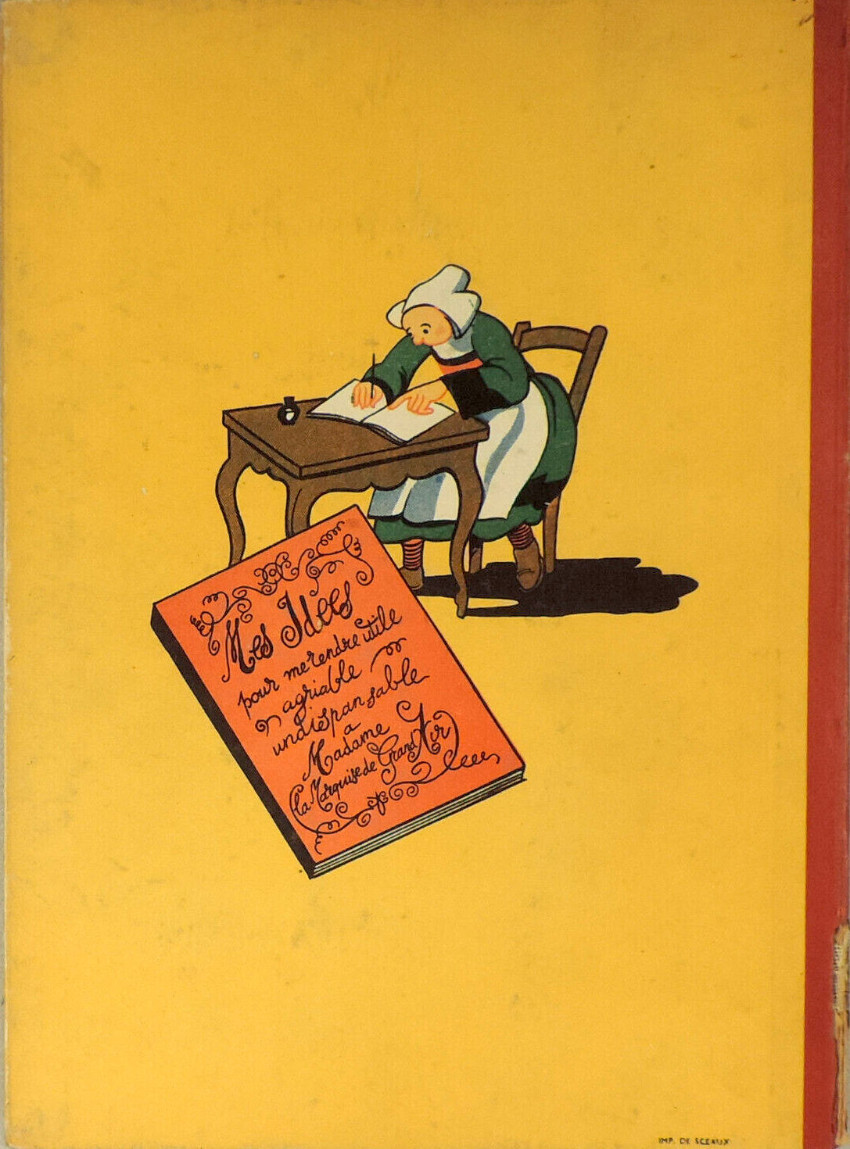 Mes Idées
pour me rendre utile
agriable
undispansable
a
Madame
(la Marquise de Grand Air)
IMP. DE SCEAUX